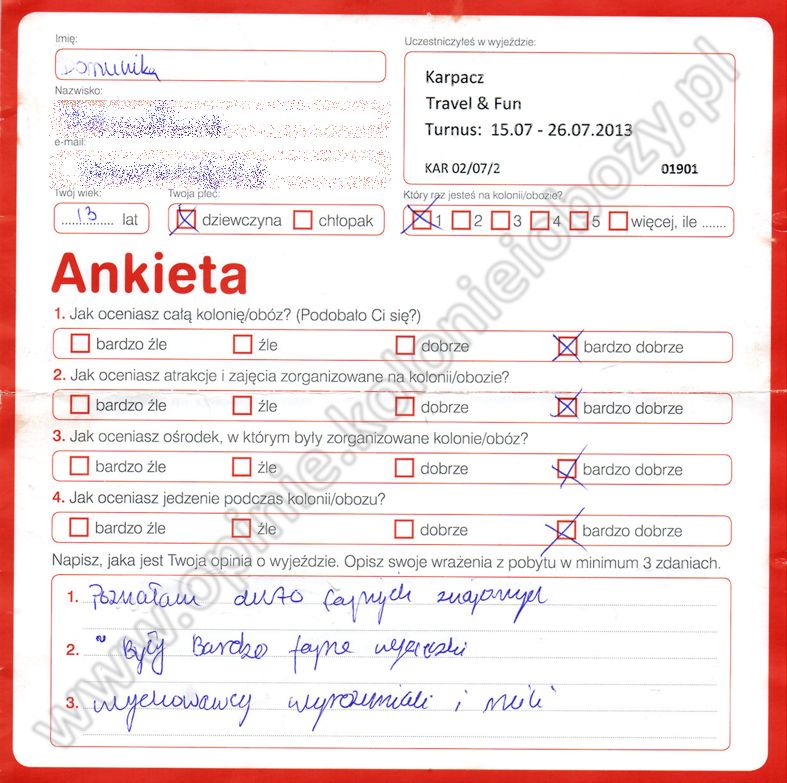 Imię:
Uczestniczyłeś w wyjeździe:
Dominika
Karpacz
Nazwisko:
Travel & Fun
Turnus: 15.07 - 26.07.2013
e-mail:
KAR 02/07/2 01901
Twój wiek: Twoja płeć: Który raz jesteś na kolonii/obozie?
13 lat dziewczyna chłopak 1 2 3 4 5 więcej, ile .......
Ankieta
1. Jak oceniasz całą kolonię/obóz? (Podobało Ci się?)
bardzo źle źle dobrze bardzo dobrze
2. Jak oceniasz atrakcje i zajęcia zorganizowane na kolonii/obozie?
bardzo źle źle dobrze bardzo dobrze
3. Jak oceniasz ośrodek, w którym były zorganizowane kolonie/obóz?
bardzo źle źle dobrze bardzo dobrze
4. Jak oceniasz jedzenie podczas kolonii/obozu?
bardzo źle źle dobrze bardzo dobrze
Napisz, jaka jest Twoja opinia o wyjeździe. Opisz swoje wrażenia z pobytu w minimum 3 zdaniach.
1. Poznałam dużo fajnych znajomych
2. Były Bardzo fajne wycieczki
3. wychowawcy wyrozumiali i mili
www.opinie.kolonieiobozy.pl